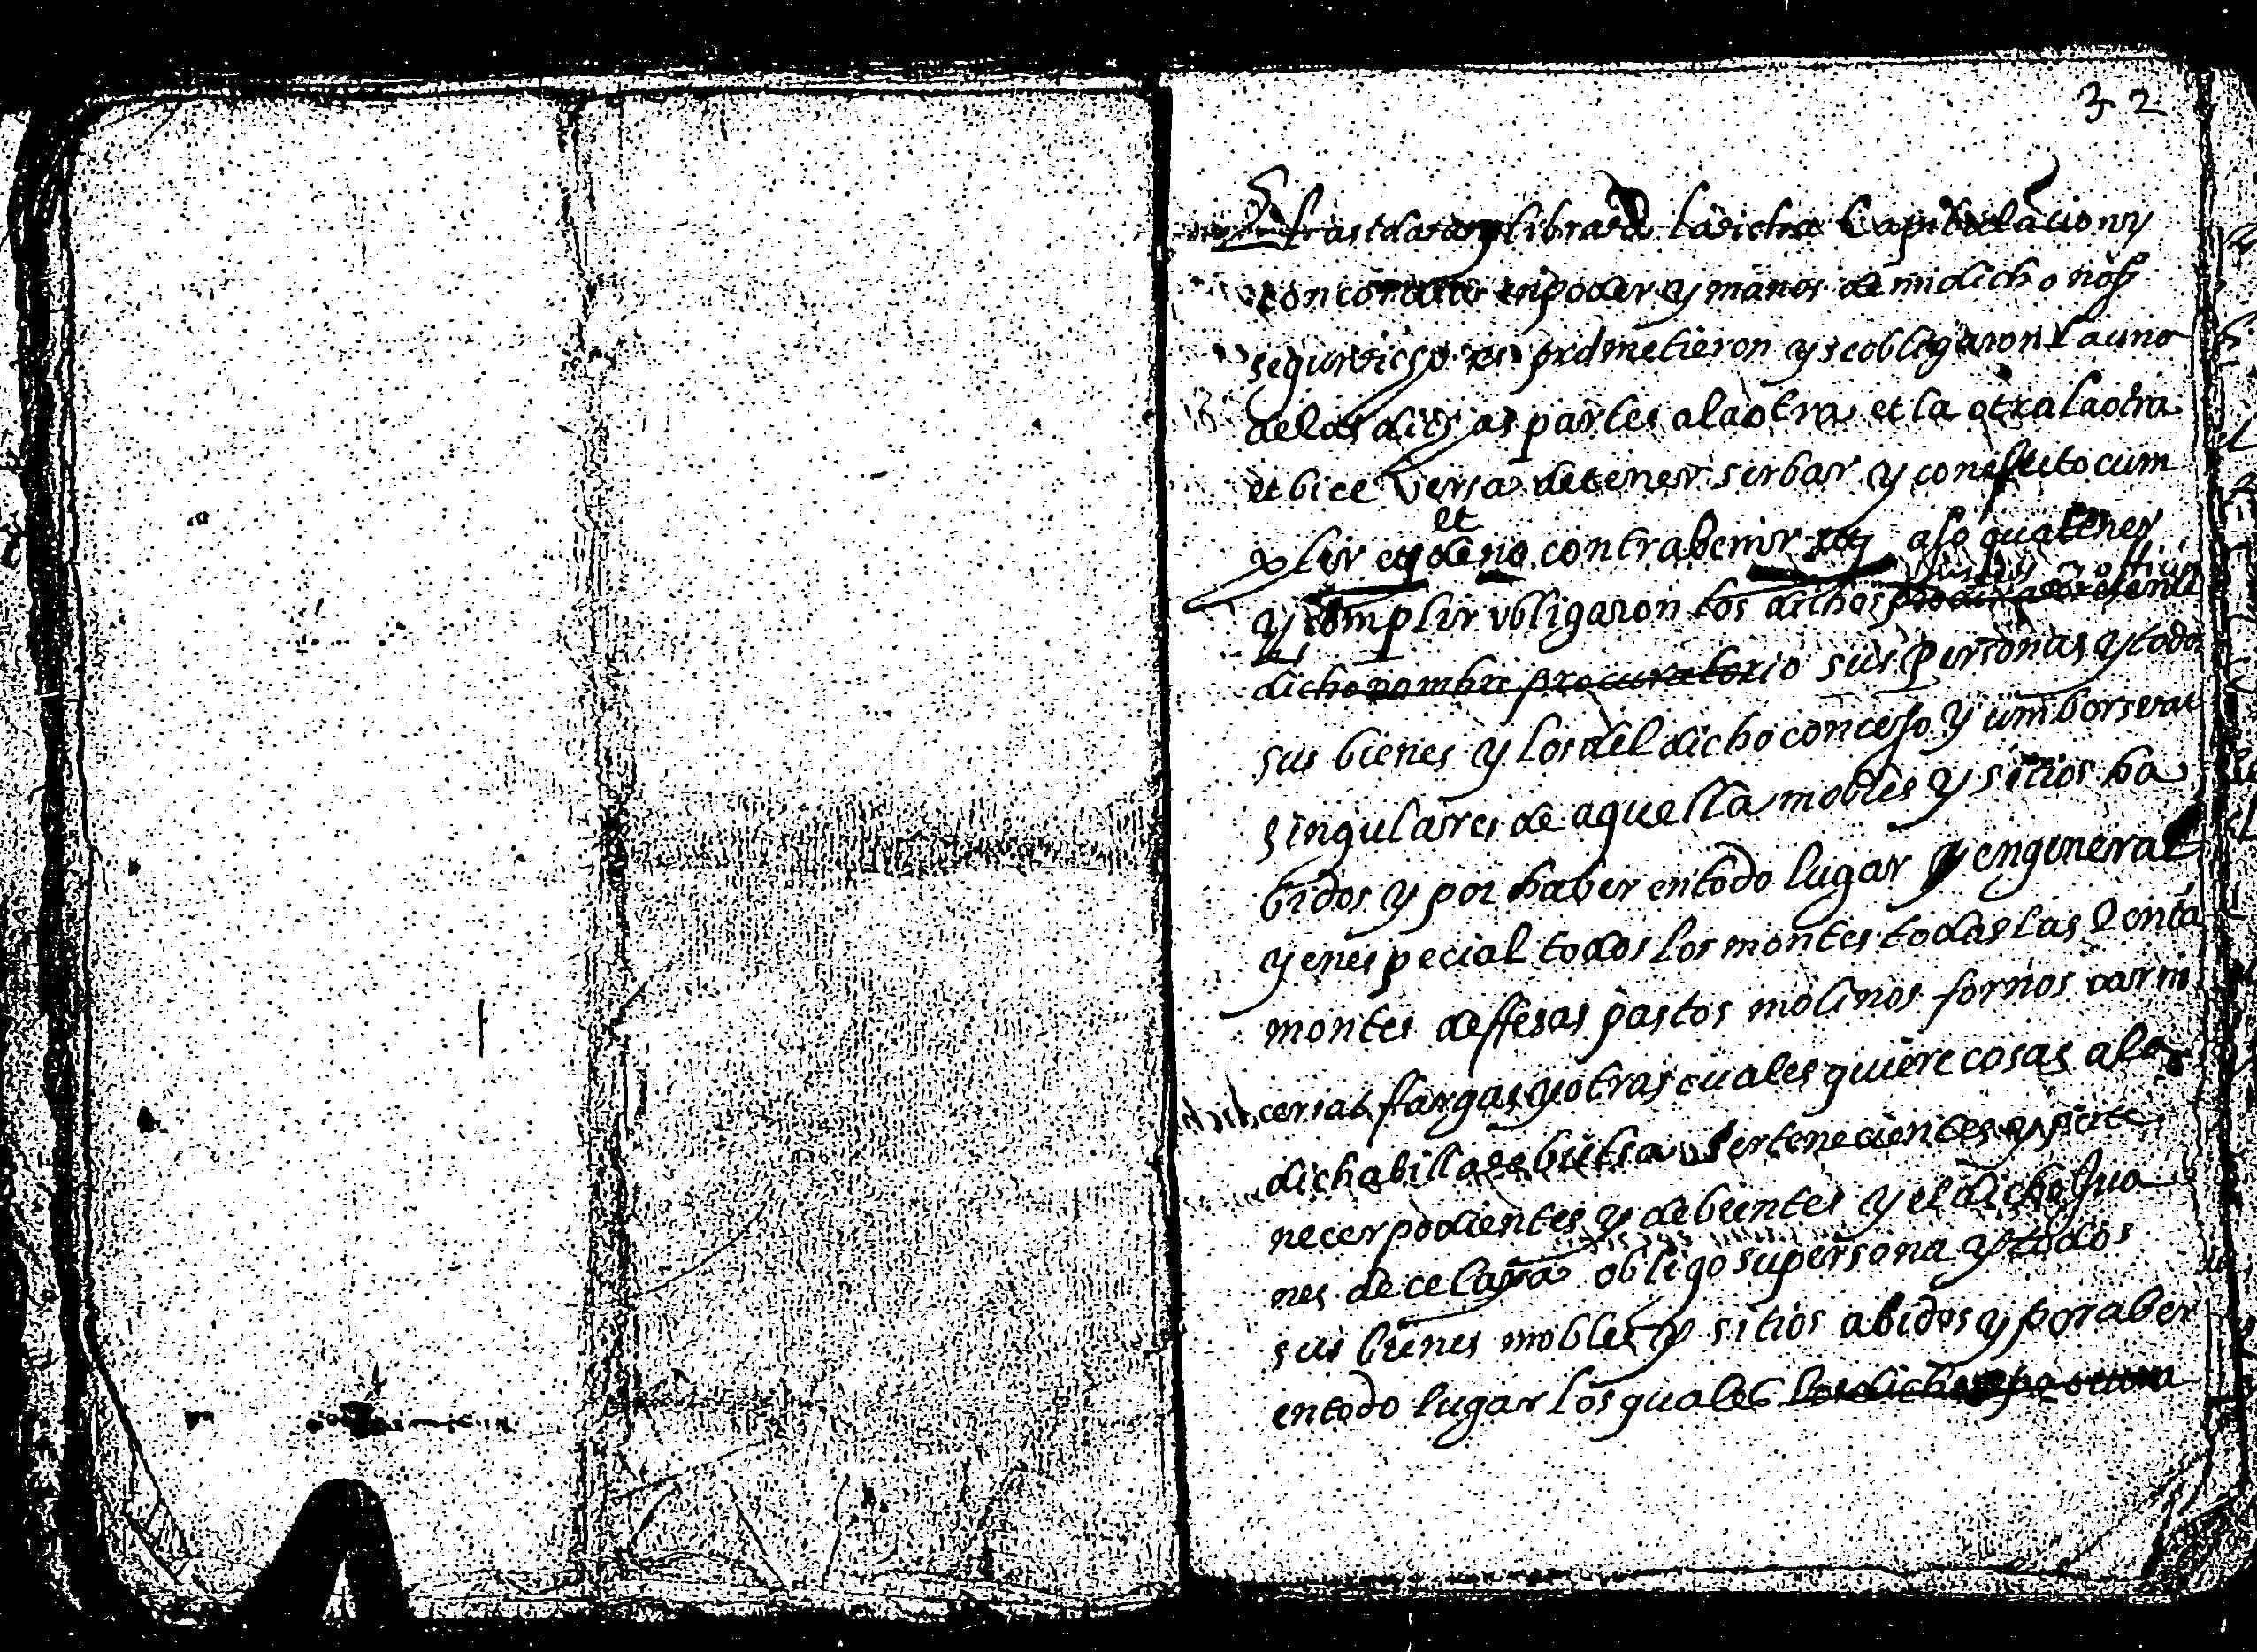 32
librada la dicha Capitulacion y
en poder y manos de mi dicho noto
segun dicho es prometieron y se obligaron la una
de las dichas partes a la otra et la otra la otra
et bice versa de tener serbar y con effecto cum
plir et de no contrabenir a lo qual tener
y complir obligaron los dichos
dicho nombre procuratorio sus personas y todos
sus bienes y los del dicho concejo y
singulares de aquella mobles y sitios ha
bidos y por haber en todo lugar y en general
y en especial todos los montes todas las
montes deffesas pastos molinos fornos carni
cerias fargas y otras cuales quiere cosas a la
dicha billa de bielsa pertenecientes y perte
necer podientes y debientes y el dicho Jua
nes de celaya obligo su persona y todos
sus bienes mobles y sitios abidos y por aber
en todo lugar los quales los dichos